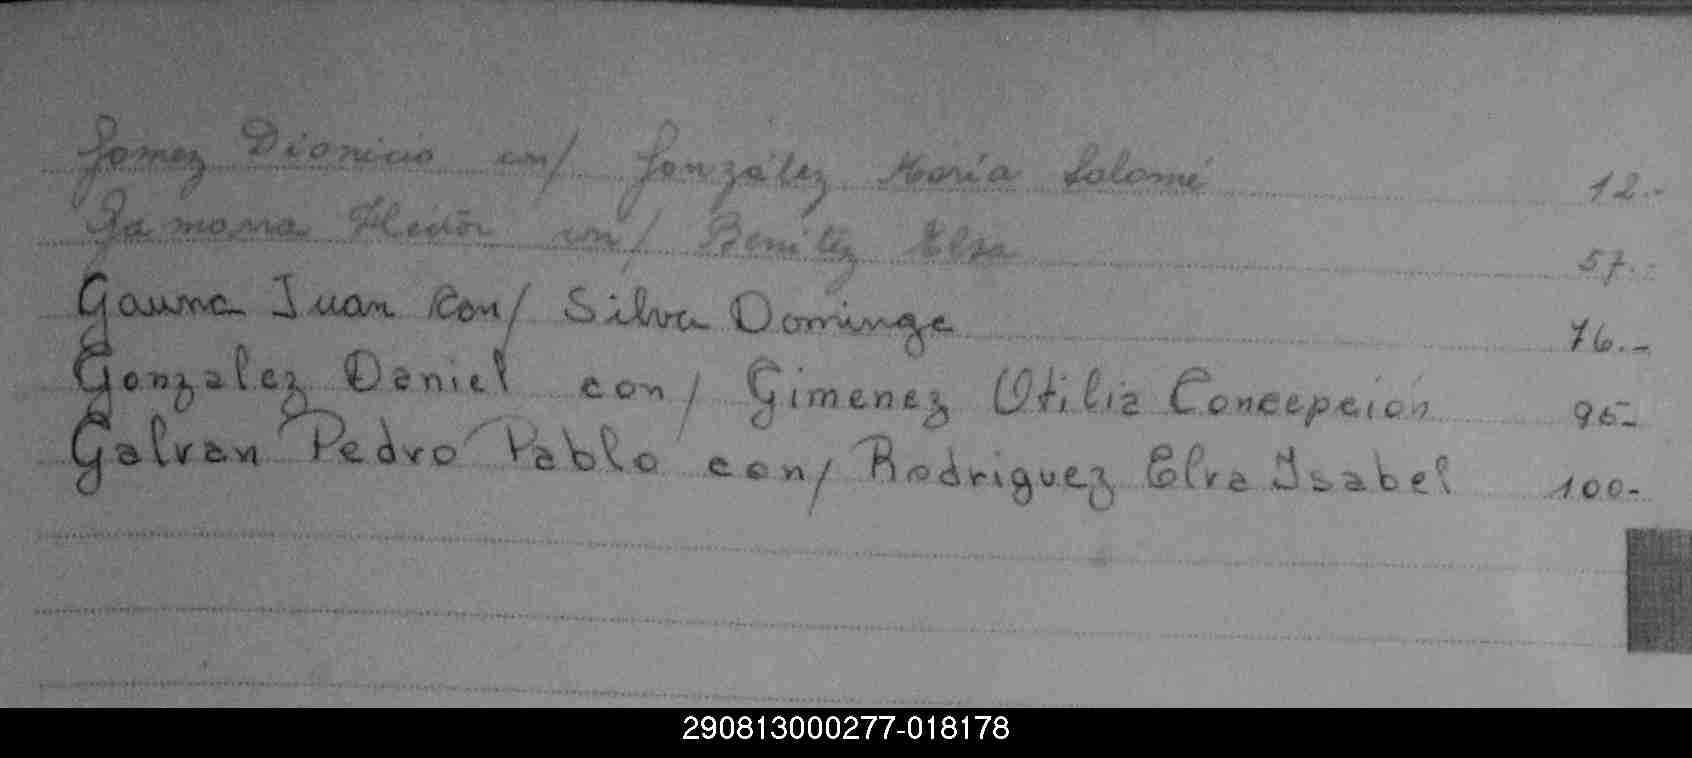 Gomez Dionicio con/ González María Salomé 12.-
Gamarra Hector con/ Benitez Elsa 57.-
Gauna Juan con/ Silva Dominga 76.-
Gonzalez Daniel con/ Gimenez Otilia Concepción 95-
Galvan Pedro Pablo con/ Rodriguez Elva Isabel 100-
290813000277-018178